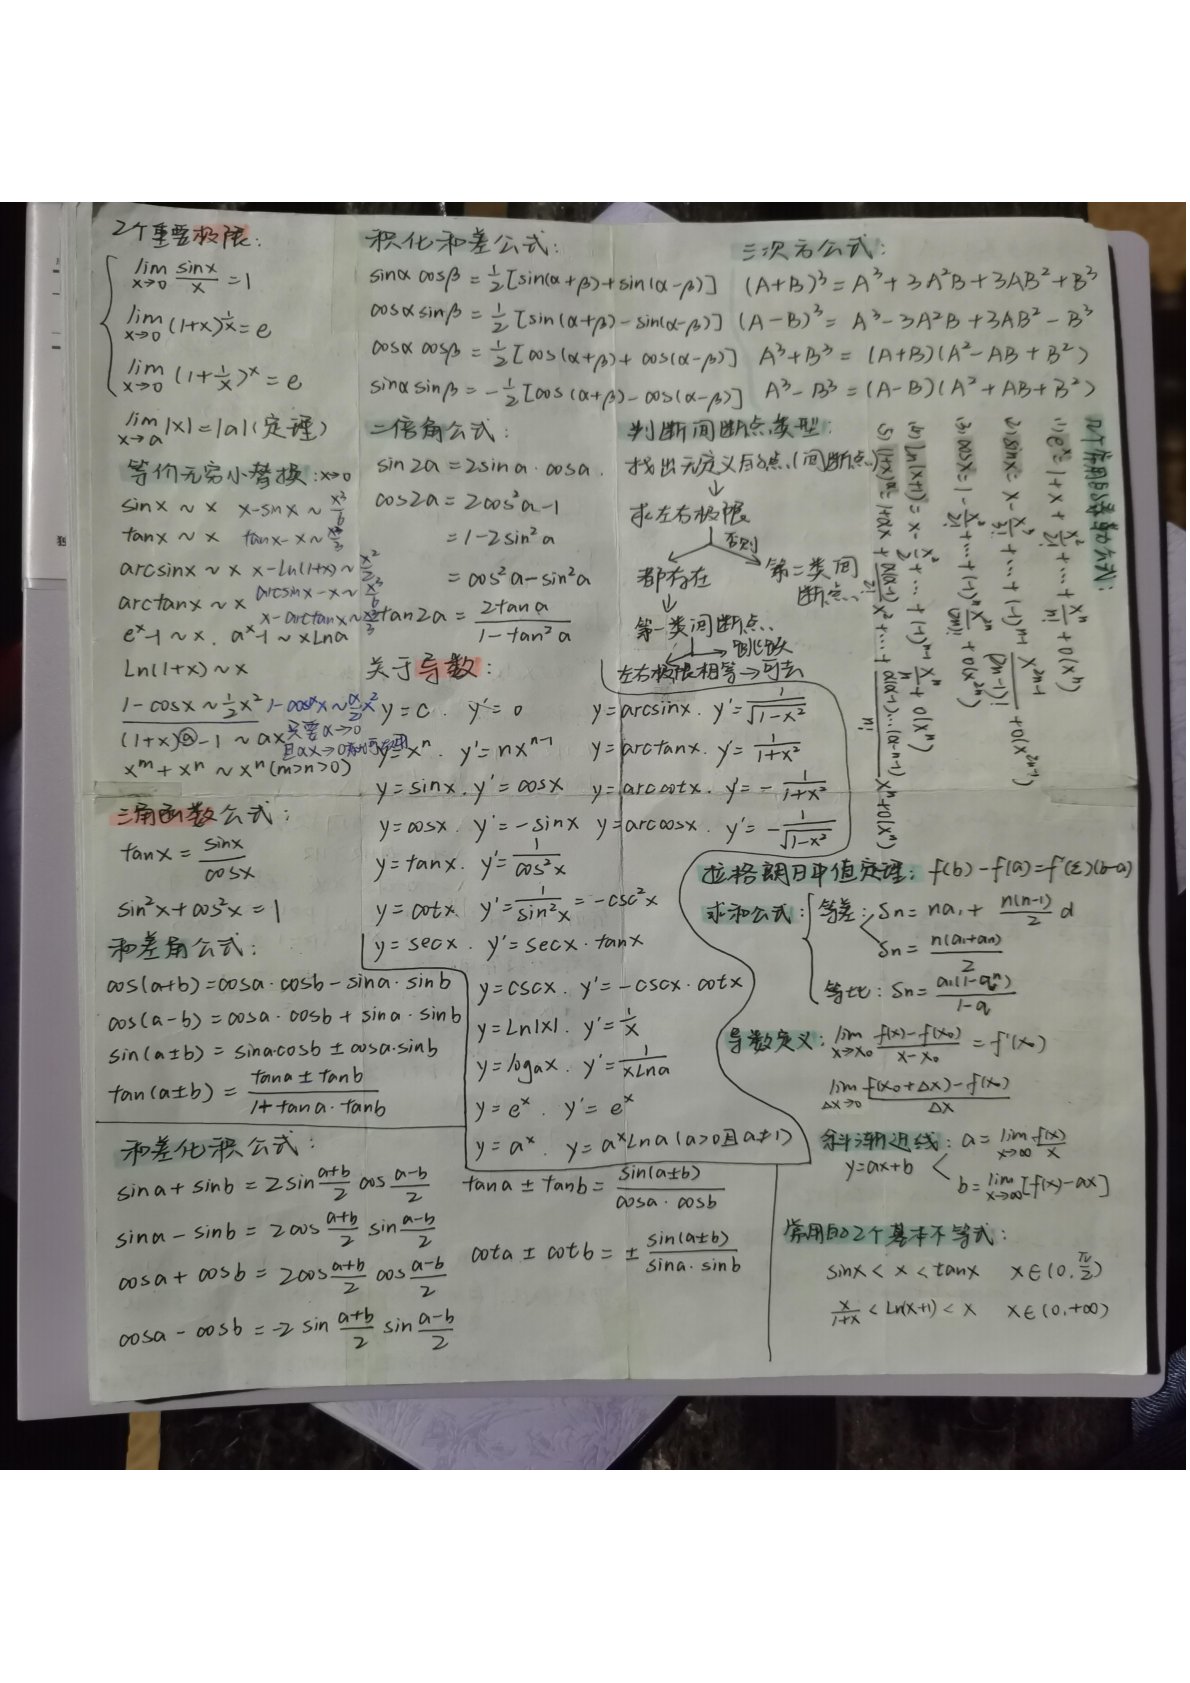 2个重要极限:
lim x→0 sinx/x = 1
lim x→0 (1+x)^(1/x) = e
lim x→0 (1+1/x)^x = e
lim x→a |x| = |a| (定理)
等价无穷小替换: x→0
sinx ~ x  x-sinx ~ x³/6
tanx ~ x  tanx-x ~ x³/3
arcsinx ~ x  x-Ln(1+x) ~ x²/2
arctanx ~ x  arcsinx-x ~ x³/6
x-arctanx ~ x³/3
e^x-1 ~ x. a^x-1 ~ xLna
Ln(1+x) ~ x
1-cosx ~ ½x²  1-cos^αx ~ α/2 x²
(1+x)^ⓐ-1 ~ ax 只要α→0
且αx→0
x^m + x^n ~ x^n (m>n>0)
三角函数公式:
tanx = sinx/cosx
sin²x+cos²x = 1
和差角公式:
cos(a+b)=cosa·cosb-sina·sinb
cos(a-b)=cosa·cosb+sina·sinb
sin(a±b)=sina·cosb±cosa·sinb
tan(a±b)= (tana±tanb)/(1+tana·tanb)
和差化积公式:
sina+sinb=2sin (a+b)/2 cos (a-b)/2
sina-sinb=2cos (a+b)/2 sin (a-b)/2
cosa+cosb=2cos (a+b)/2 cos (a-b)/2
cosa-cosb=-2sin (a+b)/2 sin (a-b)/2
tana±tanb= sin(a±b)/(cosa·cosb)
cota±cotb=± sin(a±b)/(sina·sinb)
积化和差公式:
sinαcosβ=½[sin(α+β)+sin(α-β)]
cosαsinβ=½[sin(α+β)-sin(α-β)]
cosαcosβ=½[cos(α+β)+cos(α-β)]
sinαsinβ=-½[cos(α+β)-cos(α-β)]
二倍角公式:
sin2a=2sina·cosa.
cos2a=2cos²a-1
=1-2sin²a
=cos²a-sin²a
tan2a= 2tana/(1-tan²a)
关于导数:
y=c. y'=0
y=x^n. y'=nx^(n-1)
y=sinx. y'=cosx
y=cosx. y'=-sinx
y=tanx. y'=1/cos²x
y=cotx. y'=1/sin²x=-csc²x
y=secx. y'=secx·tanx
y=cscx. y'=-cscx·cotx
y=Ln|x|. y'=1/x
y=logax. y'=1/(xLna)
y=e^x. y'=e^x
y=a^x. y=a^xLna(a>0且a≠1)
y=arcsinx. y'=1/√(1-x²)
y=arctanx. y=1/(1+x²)
y=arccotx. y'=-1/(1+x²)
y=arccosx. y'=-1/√(1-x²)
三次方公式:
(A+B)³=A³+3A²B+3AB²+B³
(A-B)³=A³-3A²B+3AB²-B³
A³+B³=(A+B)(A²-AB+B²)
A³-B³=(A-B)(A²+AB+B²)
判断间断点类型:
找出无定义的点(间断点)
↓
求左右极限
否则
都存在
第二类间
断点
↓
第一类间断点
→跳跃
左右极限相等→可去
几个常用的泰勒公式:
(1) e^x=1+x+x²/2!+…+x^n/n!+o(x^n)
(2) sinx=x-x³/3!+…+(-1)^(n-1) x^(2n-1)/(2n-1)!+o(x^(2n-1))
(3) cosx=1-x²/2!+…+(-1)^n x^(2n)/(2n)!+o(x^(2n))
(4) Ln(x+1)=x-x²/2+…+(-1)^(n-1) x^n/n+o(x^n)
(5) (1+x)^α=1+αx+α(α-1)/2! x²+…+α(α-1)…(α-n-1)/n! x^n+o(x^n)
拉格朗日中值定理: f(b)-f(a)=f'(ξ)(b-a)
求和公式: 等差: Sn=na₁+ n(n-1)/2 d
Sn= n(a₁+an)/2
等比: Sn= a₁(1-q^n)/(1-q)
导数定义: lim x→x₀ (f(x)-f(x₀))/(x-x₀) = f'(x₀)
lim Δx→0 (f(x₀+Δx)-f(x₀))/Δx
斜渐近线: a=lim x→∞ f(x)/x
y=ax+b
b=lim x→∞ [f(x)-ax]
常用的2个基本不等式:
sinx<x<tanx  x∈(0,π/2)
x/(1+x)<Ln(x+1)<x  x∈(0,+∞)